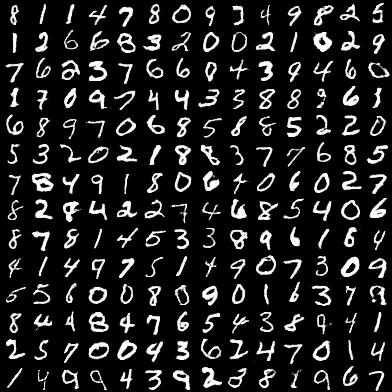 8 1 1 4 7 8 0 9 3 4 9 8 2 5
1 2 6 6 8 3 2 0 0 2 1 0 2 9
7 6 2 3 7 6 6 0 4 3 9 4 6 0
1 7 0 9 7 4 4 3 3 8 8 9 6 3
6 8 9 7 0 6 8 5 8 8 5 2 2 0
5 3 2 0 2 1 8 8 3 7 7 6 8 5
7 8 4 9 1 8 0 6 1 0 6 0 2 7
8 2 8 4 2 2 7 4 6 8 5 4 0 6
8 7 8 1 4 5 3 3 8 9 6 1 6 4
4 1 4 9 7 5 1 4 9 0 7 3 0 9
5 5 6 0 0 8 0 9 0 1 6 3 7 8
8 4 4 8 4 7 6 5 4 3 8 9 4 1
2 5 7 0 0 4 3 6 2 4 7 0 1 4
1 4 9 9 4 3 9 2 3 8 1 9 6 7